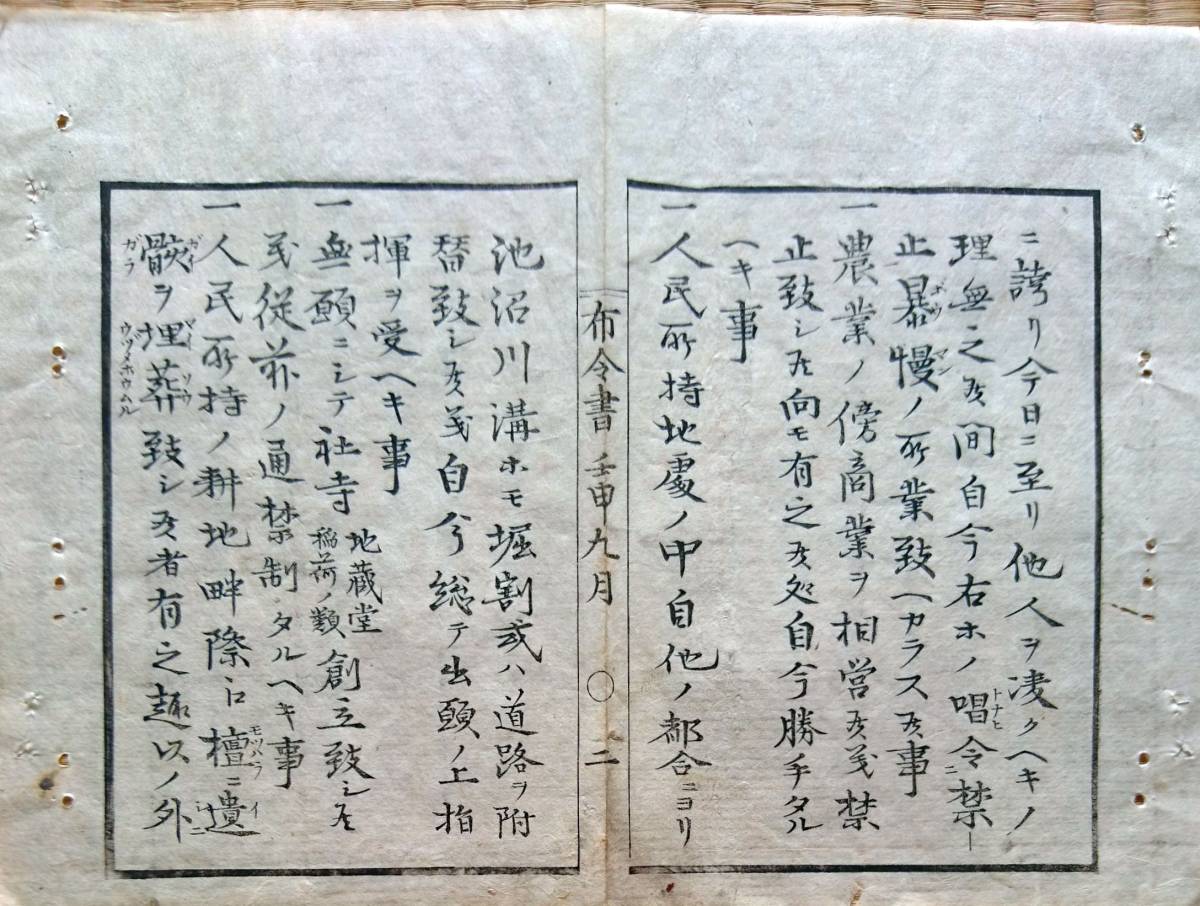 ニ誇リ今日ニ至リ他人ヲ凌クヘキノ
理無之候間自今右ホノ唱令禁
トナヒ
ニ
止暴慢ノ所業致ヘカラス候事
ボウマン
一農業ノ傍商業ヲ相営候義禁
止致シ候向モ有之候処自今勝手タル
ヘキ事
一人民所持地處ノ中自他ノ都合ニヨリ
布令書 壬申九月 〇 二
池沼川溝ホモ堀割或ハ道路ヲ附
替致シ候義自今総テ出願ノ上指
揮ヲ受ヘキ事
一無願ニシテ社寺 地蔵堂 稲荷ノ類 創立致シ候
義従前ノ通禁制タルヘキ事
一人民所持ノ耕地畔際江檀ニ遺
モツハラ
イ
骸ヲ埋葬致シ候者有之趣以ノ外
ガイ
マイソウ
ガラ
ウヅメホウムル